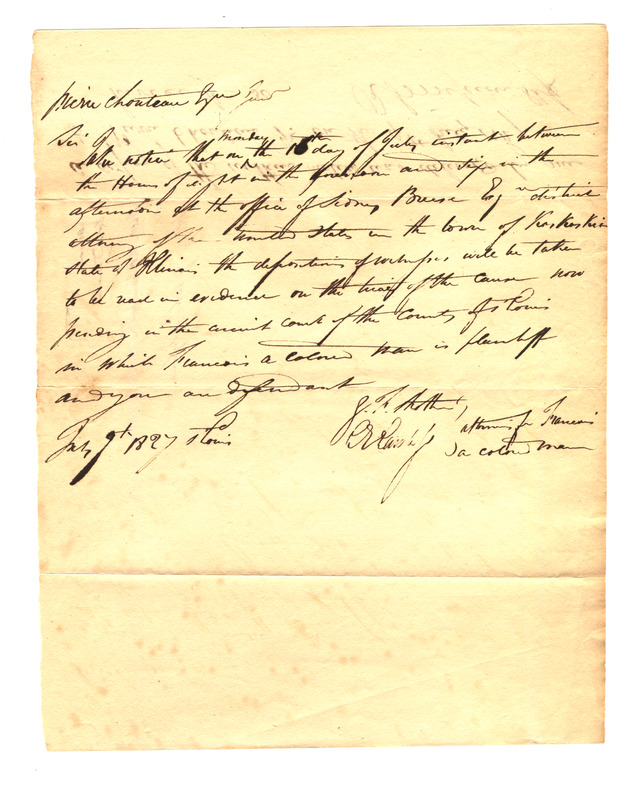 Pierre Chouteau Esqr Senr
Sir,
Take notice that on monday the 16th day of July instant between
the Hours of eight in the forenoon and six in the
afternoon at the office of Sidney Breese Esqr district
attorney of the United States in the town of Kaskaskia
State of Illinois the depositions of witnesses will be taken
to be read in evidence on the trial of the cause now
pending in the circuit court of the County of St Louis
in which Francois a colored man is plaintiff
and you are defendant
July 9th 1827 St Louis
attornies for Francois
a colored man